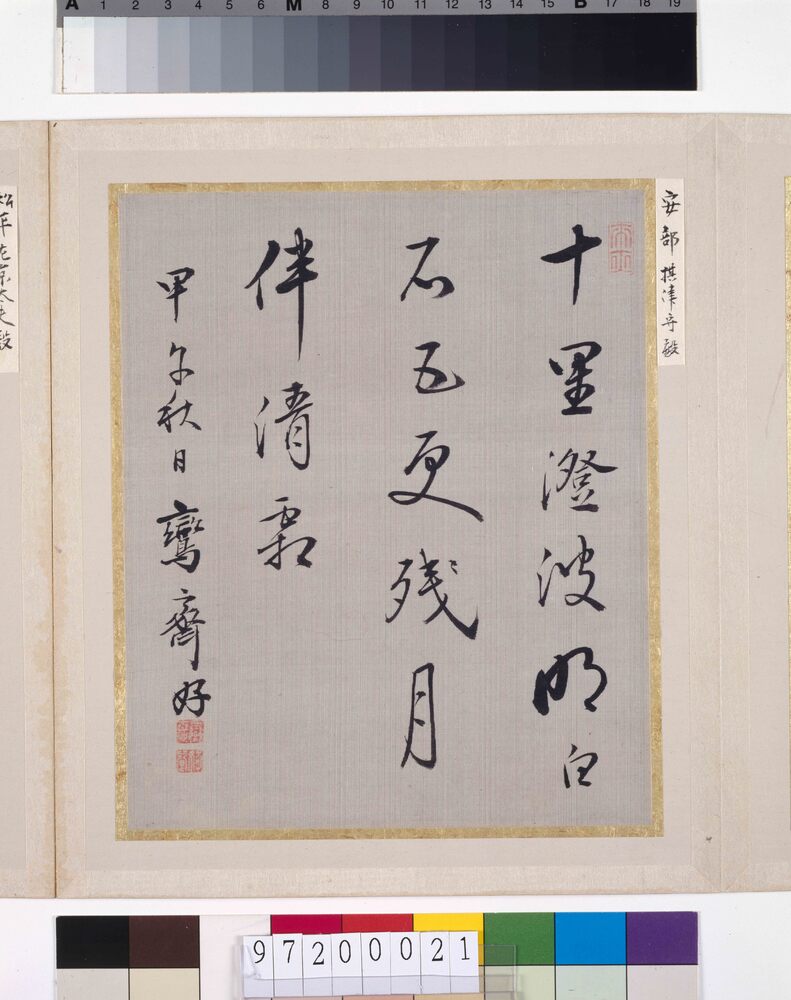 A 1 2 3 4 5 6 M 8 9 10 11 12 13 14 15 B 17 18 19
安部 摂津守殿
十里澄波明白
石五更残月
伴清霜
甲午秋日 鸞齋好
松平左京大夫殿
97200021